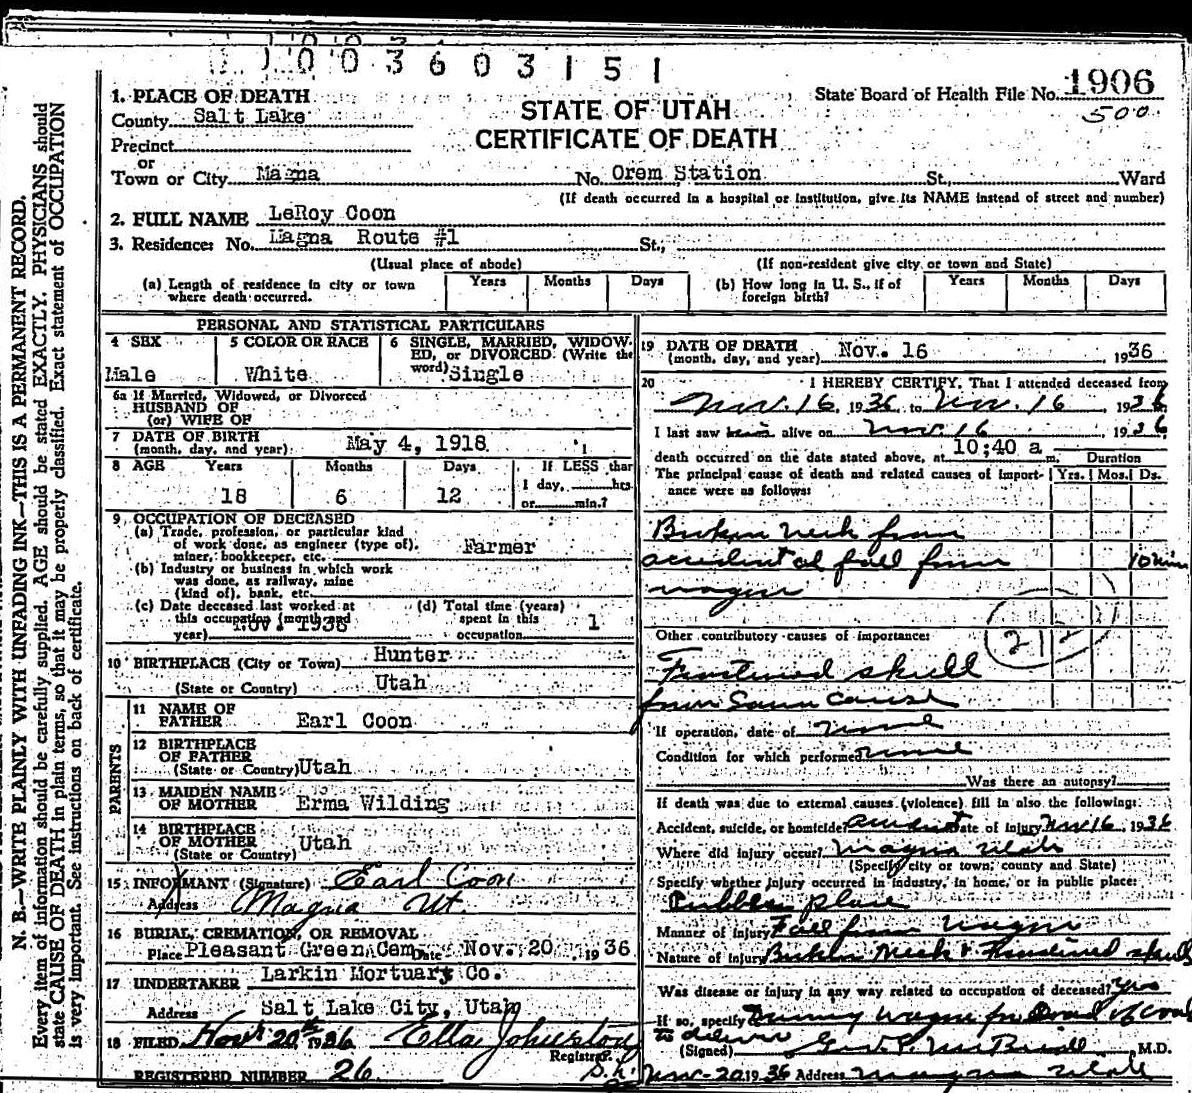 1003603151
1. PLACE OF DEATH
County Salt Lake
STATE OF UTAH
CERTIFICATE OF DEATH
State Board of Health File No. 1906
500
Precinct
or
Town or City Magna No. Orem Station St., Ward
(If death occurred in a hospital or institution, give its NAME instead of street and number)
2. FULL NAME LeRoy Coon
3. Residence: No. Magna Route #1 St.,
(Usual place of abode) (If non-resident give city or town and State)
(a) Length of residence in city or town where death occurred. Years Months Days
(b) How long in U. S., if of foreign birth? Years Months Days
PERSONAL AND STATISTICAL PARTICULARS
4 SEX Male
5 COLOR OR RACE White
6 SINGLE, MARRIED, WIDOWED, or DIVORCED. (Write the word) Single
6a If Married, Widowed, or Divorced
HUSBAND OF
(or) WIFE OF
7 DATE OF BIRTH
(month, day, and year) May 4, 1918
8 AGE Years Months Days If LESS than
18 6 12 1 day, hrs.
or min.?
9 OCCUPATION OF DECEASED
(a) Trade, profession, or particular kind
of work done, as engineer (type of),
miner, bookkeeper, etc. Farmer
(b) Industry or business in which work
was done, as railway, mine
(kind of), bank, etc.
(c) Date deceased last worked at
this occupation (month and
year) Nov. 1936
(d) Total time (years)
spent in this
occupation 1
10 BIRTHPLACE (City or Town) Hunter
(State or Country) Utah
PARENTS
11 NAME OF
FATHER Earl Coon
12 BIRTHPLACE
OF FATHER
(State or Country) Utah
13 MAIDEN NAME
OF MOTHER Erma Wilding
14 BIRTHPLACE
OF MOTHER
(State or Country) Utah
15 INFORMANT (Signature) Earl Coon
Address Magna Ut.
16 BURIAL, CREMATION, OR REMOVAL
Place Pleasant Green Cem Date Nov. 20 1936
17 UNDERTAKER Larkin Mortuary Co.
Address Salt Lake City, Utah
18 FILED Nov 20th 1936 Ella Johnston
Registrar.
REGISTERED NUMBER 26
19 DATE OF DEATH
(month, day, and year) Nov. 16 1936
20 I HEREBY CERTIFY, That I attended deceased from
Nov. 16, 1936 to Nov. 16, 1936
I last saw him alive on Nov. 16 1936
death occurred on the date stated above, at 10:40 a m. Duration
The principal cause of death and related causes of importance were as follows: Yrs. Mos. Ds.
Broken neck from
accidental fall from 10 min
wagon
Other contributory causes of importance:
Fractured skull
from same cause
If operation, date of none
Condition for which performed none
Was there an autopsy?
If death was due to external causes (violence) fill in also the following:
Accident, suicide, or homicide accident Date of injury Nov 16, 1936
Where did injury occur? Magna Utah
(Specify city or town, county and State)
Specify whether injury occurred in industry, in home, or in public place:
Public place
Manner of Injury Fall from wagon
Nature of Injury Broken Neck & Fractured skull
Was disease or injury in any way related to occupation of deceased? Yes
If so, specify wagon for load of coal
to deliver
(Signed) M.D.
Nov-20, 1936 Address Magna Utah
N. B.—WRITE PLAINLY WITH UNFADING INK—THIS IS A PERMANENT RECORD.
Every item of information should be carefully supplied. AGE should be stated EXACTLY. PHYSICIANS should
state CAUSE OF DEATH in plain terms, so that it may be properly classified. Exact statement of OCCUPATION
is very important. See instructions on back of certificate.